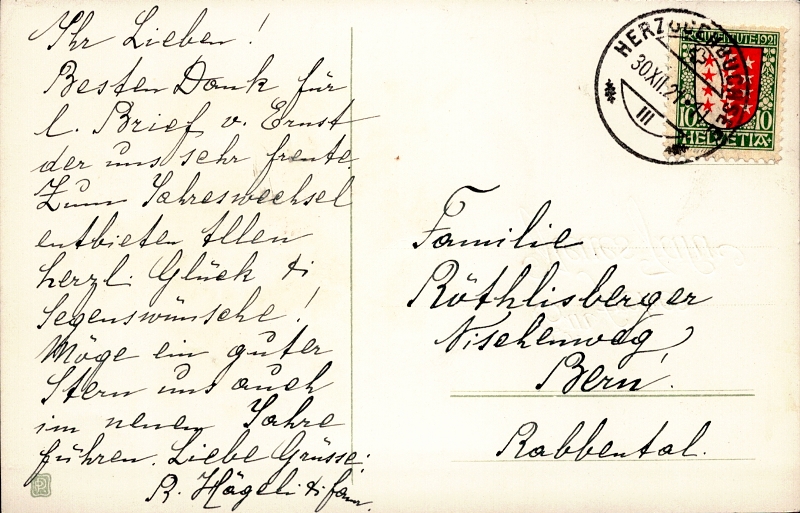 Ihr Lieben!
Besten Dank für
l. Brief v. Ernst
der uns sehr freute.
Zum Jahreswechsel
entbieten Allen
herzl. Glück &
Segenswünsche!
Möge ein guter
Stern uns auch
im neuen Jahre
führen. Liebe Grüsse:
R. Hägeli & fam.
HERZOGENBUCHSEE
30.XII.21
III
PRO JUVENTUTE 1921
10 10
HELVETIA
Familie
Röthlisberger
Nischenweg
Bern.
Rabbental.